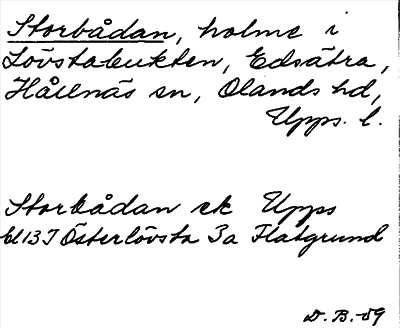 Storbådan, holme i
Lövstabukten, Edsätra,
Hållnäs sn, Olands hd,
Upps. l.
Storbådan ek Upps
bl 137 Österlövsta 3a Flatgrund
D. B. -59